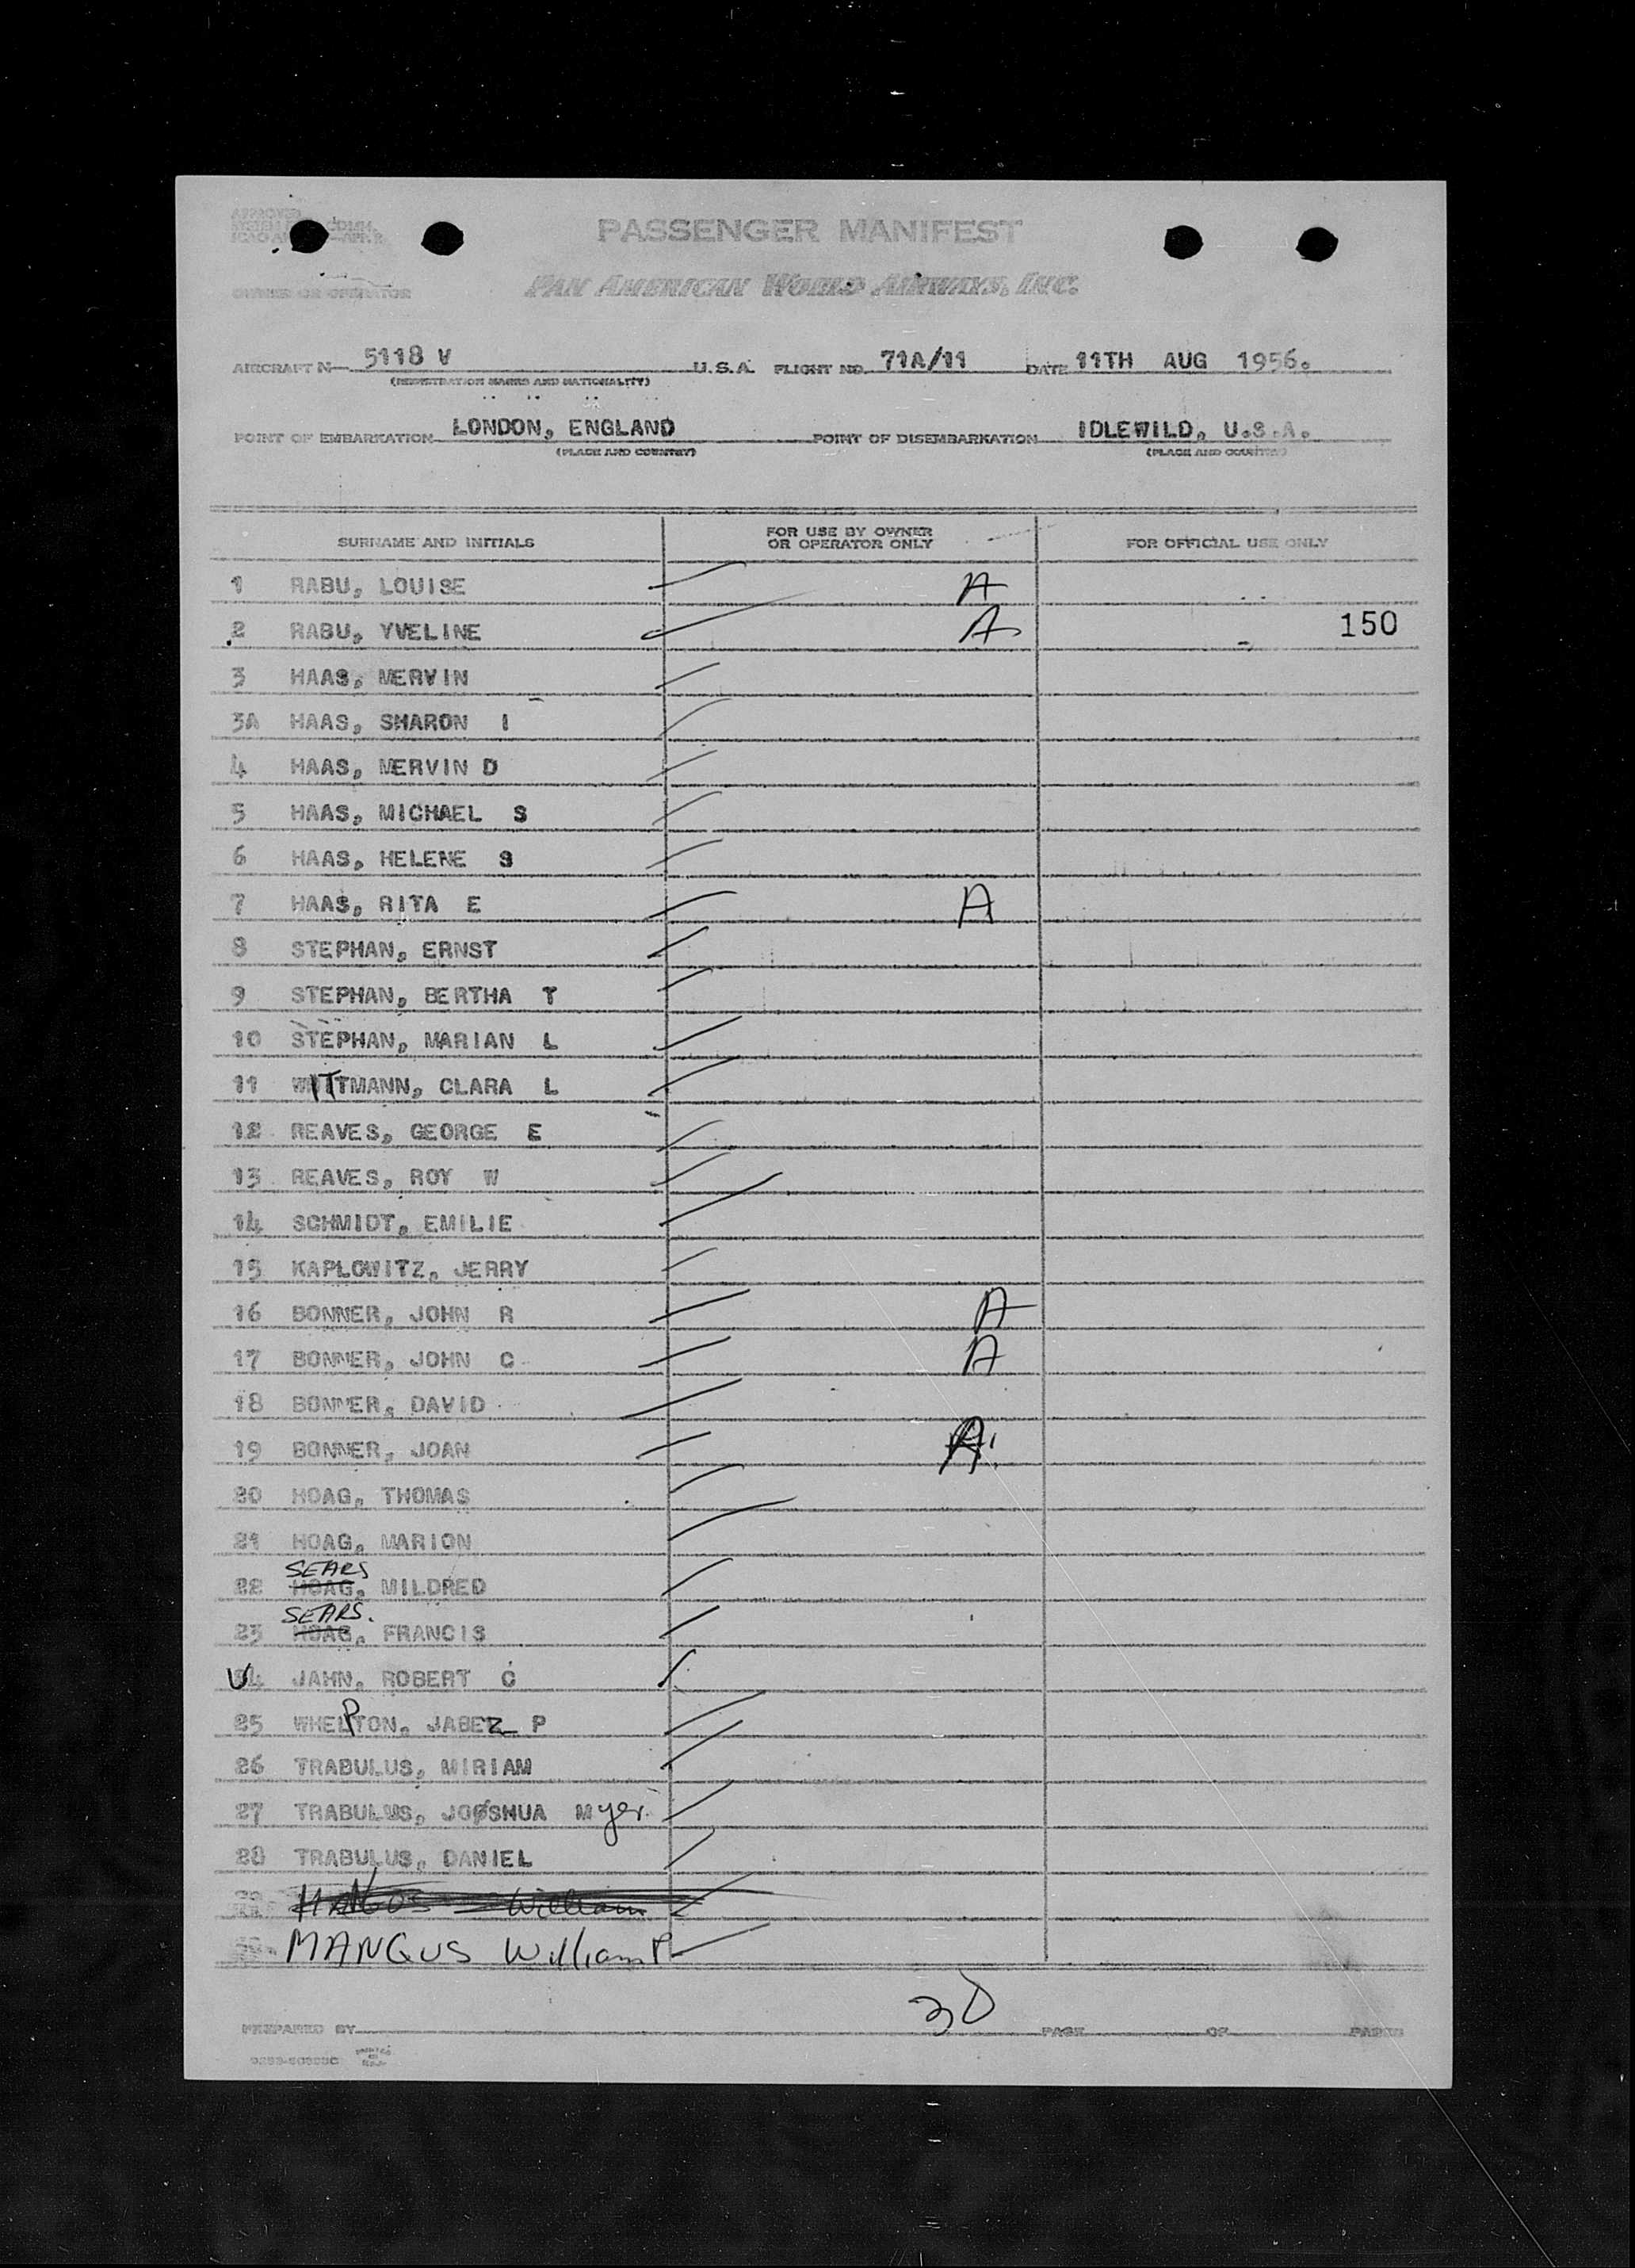 APPROVED
OWNER OR OPERATOR
PASSENGER MANIFEST
PAN AMERICAN WORLD AIRWAYS, INC.
AIRCRAFT N 5118 V U.S.A. FLIGHT NO. 71A/11 DATE 11TH AUG 1956.
(REGISTRATION MARKS AND NATIONALITY)
POINT OF EMBARKATION LONDON, ENGLAND POINT OF DISEMBARKATION IDLEWILD, U.S.A.
(PLACE AND COUNTRY) (PLACE AND COUNTRY)
SURNAME AND INITIALS FOR USE BY OWNER OR OPERATOR ONLY FOR OFFICIAL USE ONLY
1 RABU, LOUISE A
2 RABU, YVELINE A 150
3 HAAS, MERVIN
3A HAAS, SHARON I
4 HAAS, MERVIN D
5 HAAS, MICHAEL S
6 HAAS, HELENE S
7 HAAS, RITA E A
8 STEPHAN, ERNST
9 STEPHAN, BERTHA T
10 STEPHAN, MARIAN L
11 WITTMANN, CLARA L
12 REAVES, GEORGE E
13 REAVES, ROY W
14 SCHMIDT, EMILIE
15 KAPLOWITZ, JERRY
16 BONNER, JOHN R A
17 BONNER, JOHN C A
18 BONNER, DAVID
19 BONNER, JOAN A
20 HOAG, THOMAS
21 HOAG, MARION
SEARS
22 HOAG, MILDRED
SEARS.
23 HOAG, FRANCIS
24 JAHN, ROBERT C
25 WHELPTON, JABEZ P
26 TRABULUS, MIRIAM
27 TRABULUS, JOOSHUA Myer.
28 TRABULUS, DANIEL
William
MANGUS William P
30
PREPARED BY PAGE OF PAGES